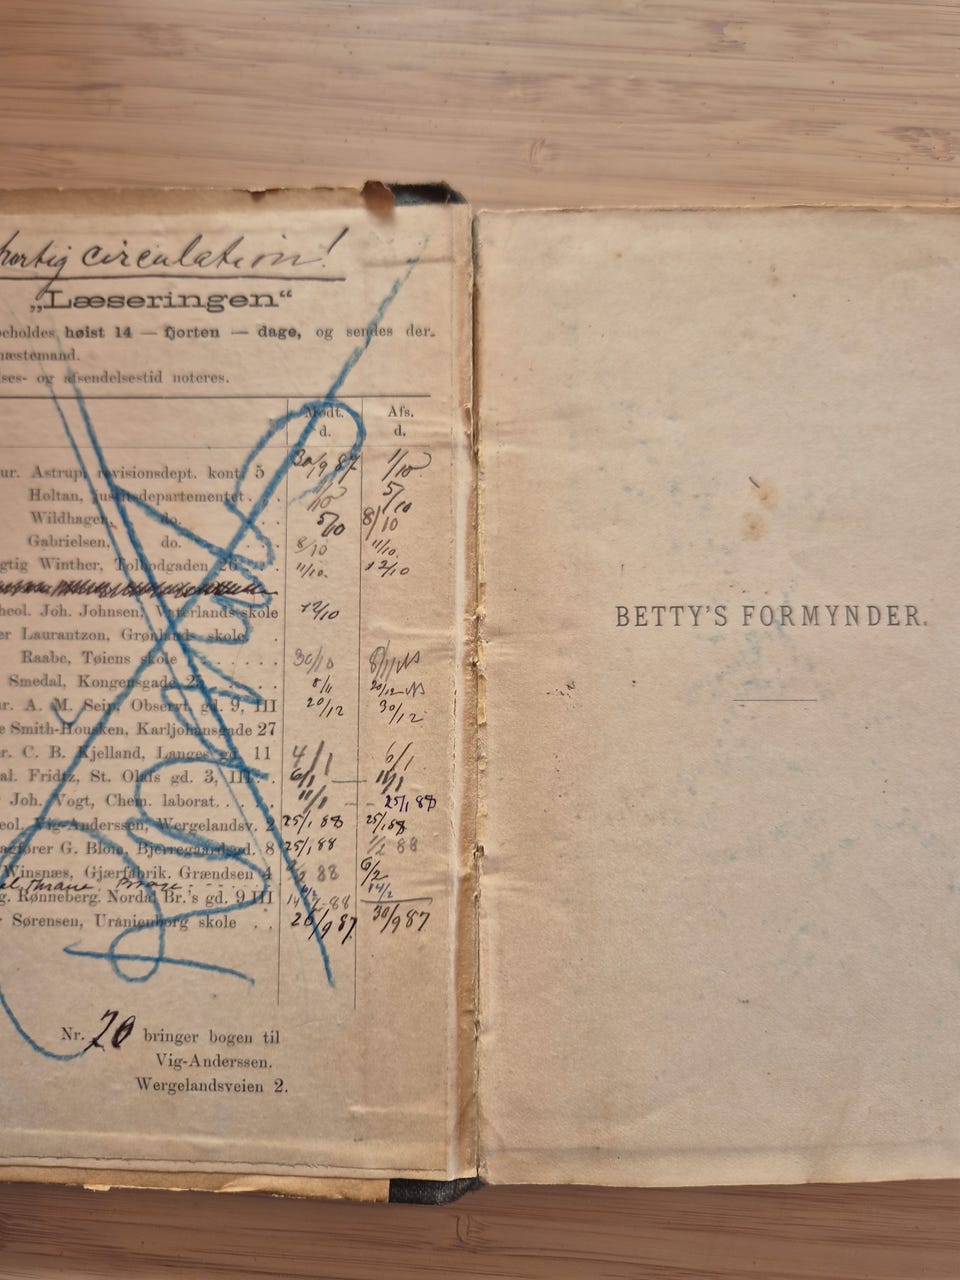 hurtig circulation!
„Læseringen“
beholdes høist 14 — fjorten — dage, og sendes der-
næstemand.
ses- og afsendelsestid noteres.
Modt. Afs.
d. d.
ur. Astrup, revisionsdept. kont. 5 30/9 87 1/10
Holtan, justitsdepartementet . . 1/10 5/10
Wildhagen, do. . . 5/10 8/10
Gabrielsen, do. . . 8/10 11/10.
gtig Winther, Tolbodgaden 26 11/10. 12/10
heol. Joh. Johnsen, Vaterlands skole 12/10
er Laurantzon, Grønlands skole. .
Raabe, Tøiens skole . . . . . 30/10 8/11
Smedal, Kongensgade 25 . . . . 8/11 20/12
ur. A. M. Seip, Observt. gd. 9, III 20/12 30/12
e Smith-Housken, Karljohansgade 27
r. C. B. Kjelland, Langes gd. 11 4/1 6/1
al. Fridtz, St. Olafs gd. 3, III . . 6/1 — 11/1
Joh. Vogt, Chem. laborat. . . . . 11/1 — 25/1 88
eol. Vig-Anderssen, Wergelandsv. 2 25/1 88 25/1 88
agfører G. Blom, Bjerregaardsgd. 8 25/1 88 1/2 88
Winsnæs, Gjærfabrik. Grændsen 4 88 6/2
Thrane 14/2
g. Rønneberg. Nordal Br.'s gd. 9 III 14/2 88
Sørensen, Uranienborg skole . . 26/9 87. 30/9 87
Nr. 20 bringer bogen til
Vig-Anderssen.
Wergelandsveien 2.
BETTY'S FORMYNDER.